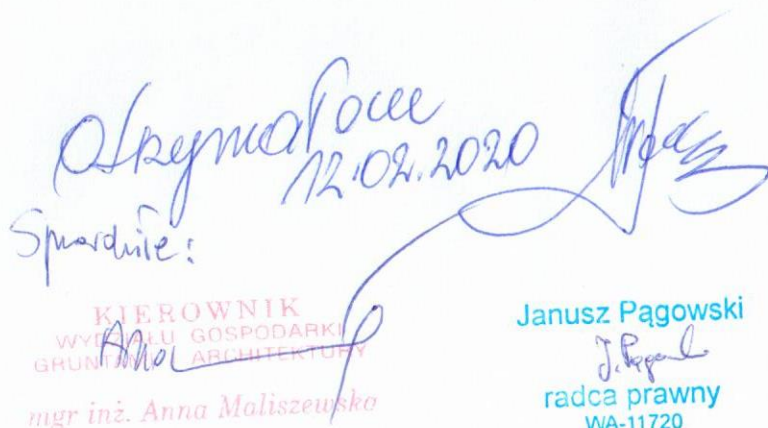 Otrzymałam
12.02.2020
Sprawdziła:
KIEROWNIK
WYDZIAŁU GOSPODARKI
GRUNTAMI I ARCHITEKTURY
mgr inż. Anna Maliszewska
Janusz Pągowski
radca prawny
WA-11720